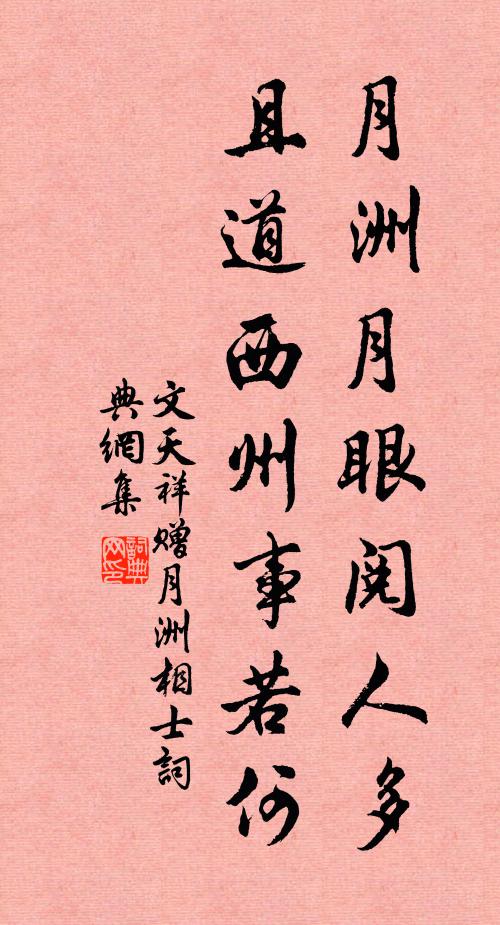 月洲月眼閱人多
且道西州事若何
文天祥赠月洲相士詞
典網集
詞典
网印